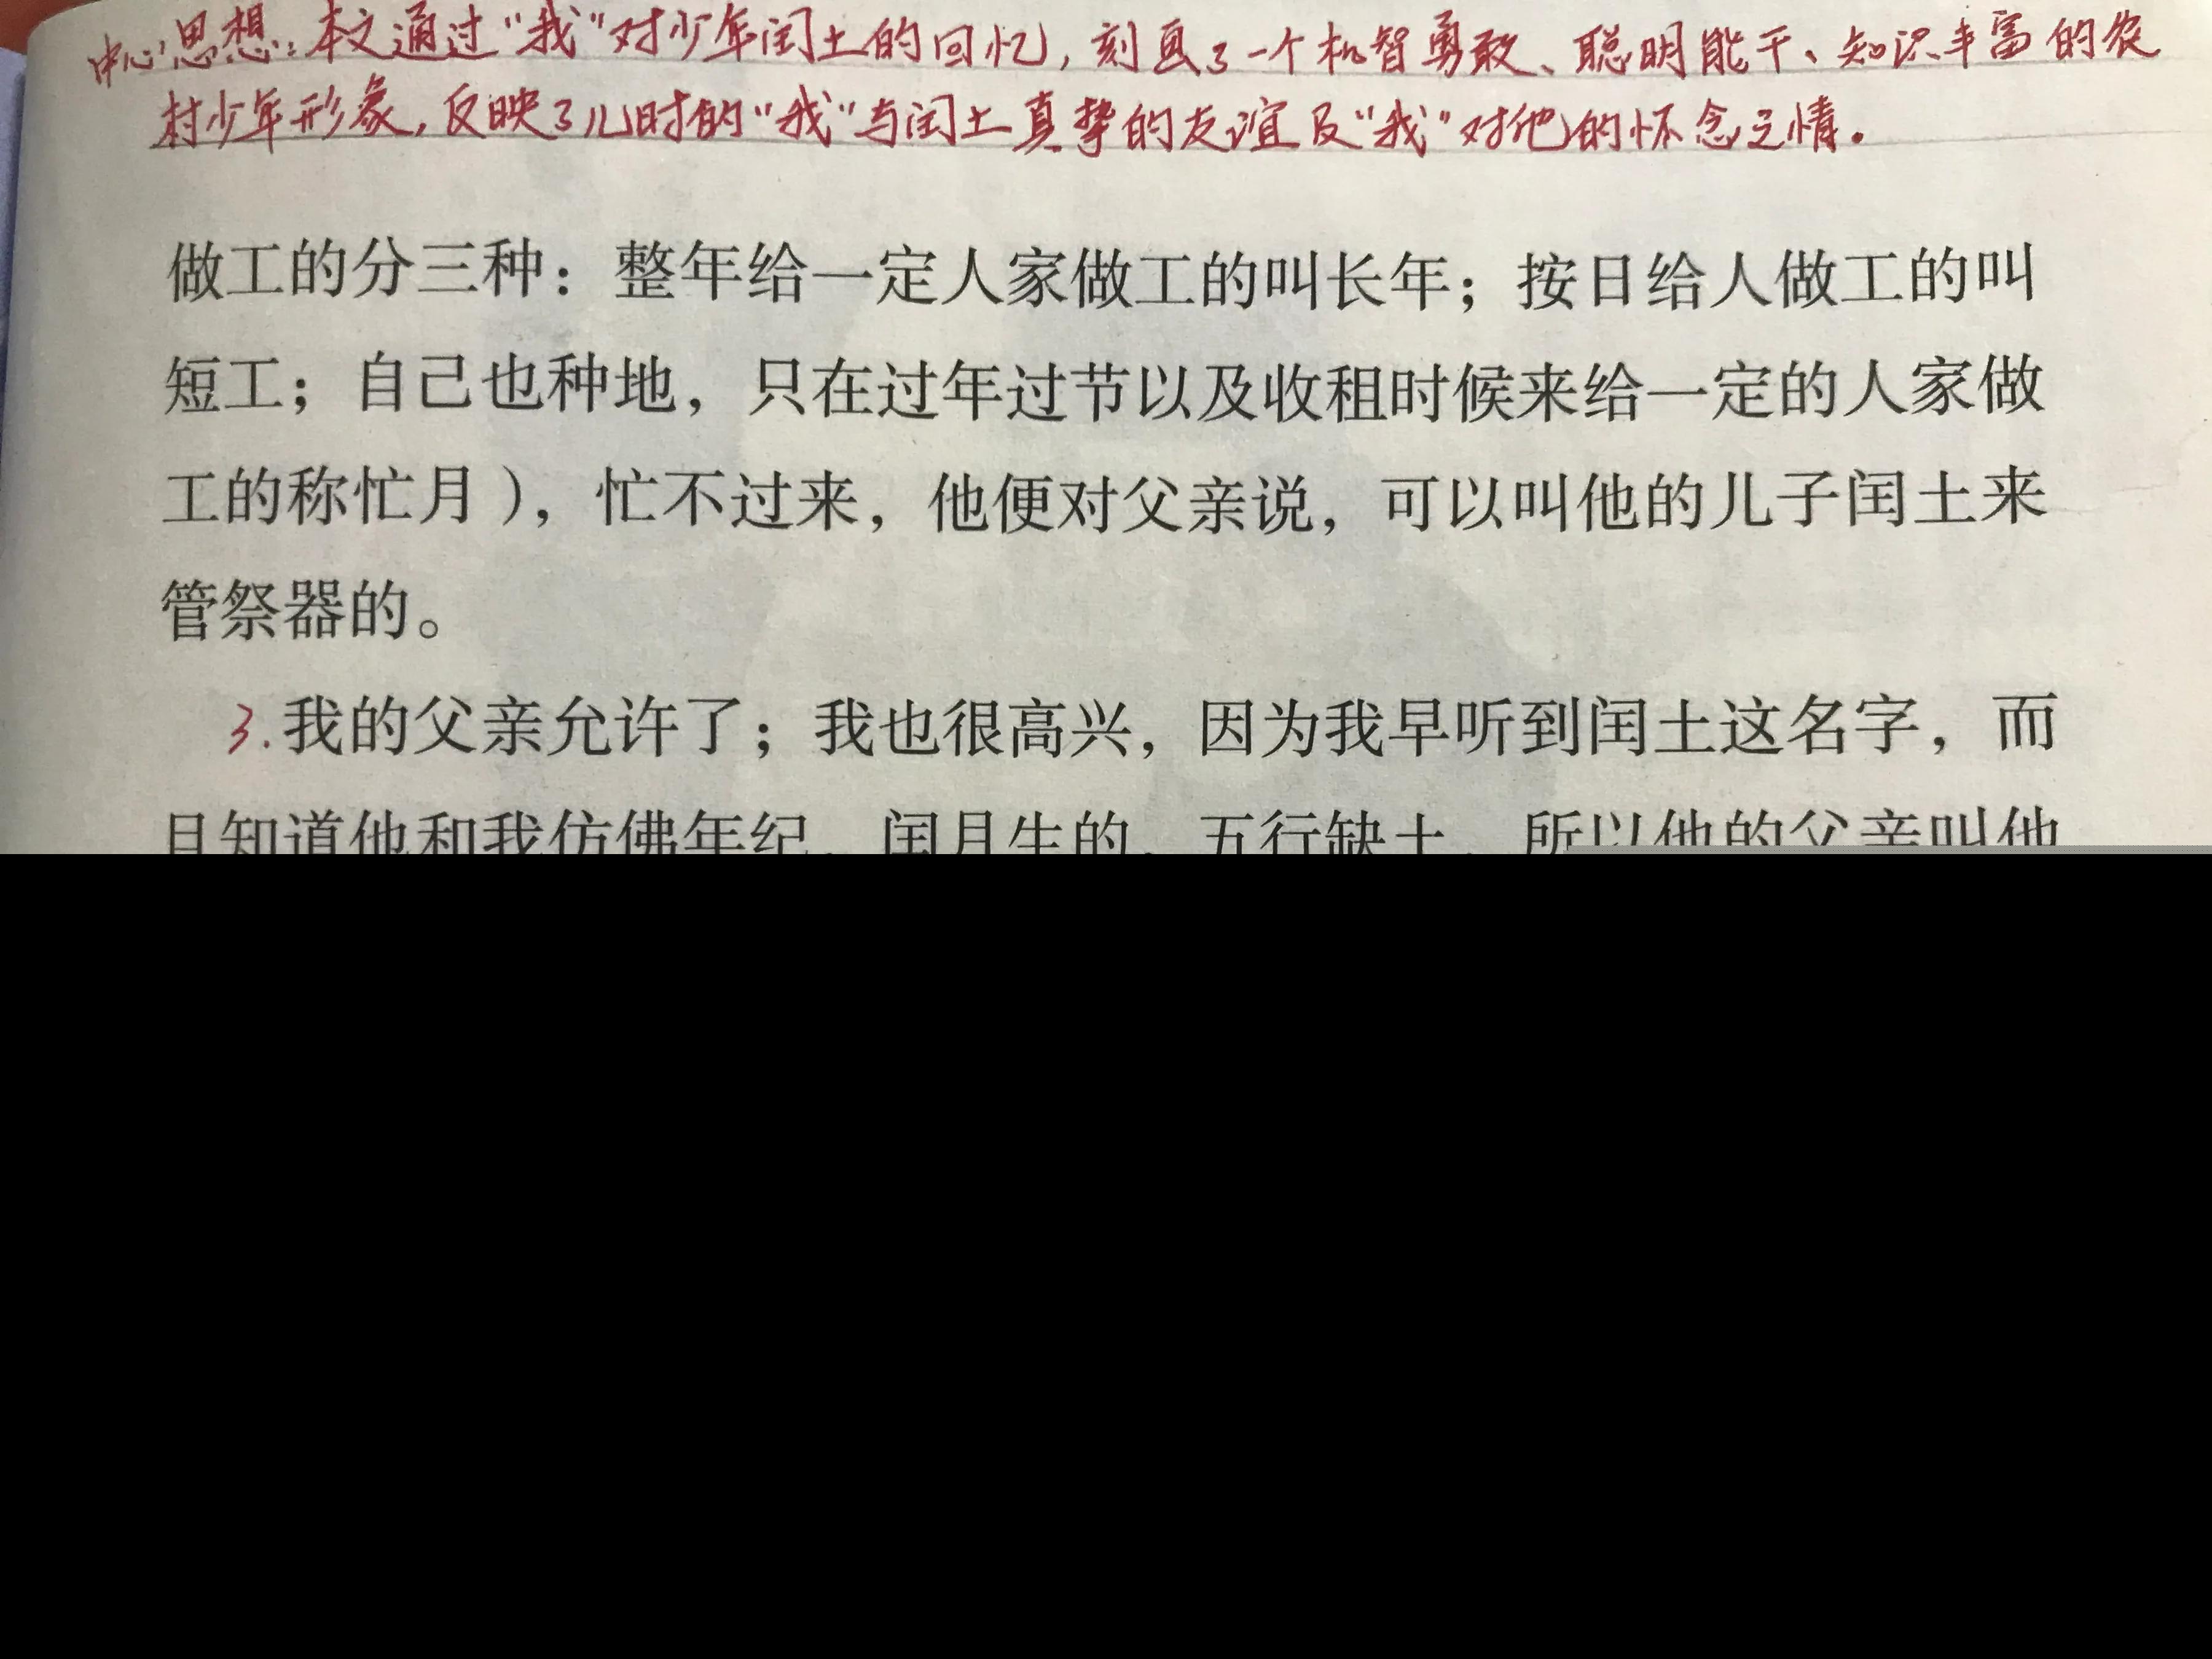 中心思想：本文通过“我”对少年闰土的回忆，刻画了一个机智勇敢、聪明能干、知识丰富的农
村少年形象，反映了儿时的“我”与闰土真挚的友谊及“我”对他的怀念之情。
做工的分三种：整年给一定人家做工的叫长年；按日给人做工的叫
短工；自己也种地，只在过年过节以及收租时候来给一定的人家做
工的称忙月），忙不过来，他便对父亲说，可以叫他的儿子闰土来
管祭器的。
3.我的父亲允许了；我也很高兴，因为我早听到闰土这名字，而
且知道他和我仿佛年纪，闰月生的，五行缺土，所以他的父亲叫他